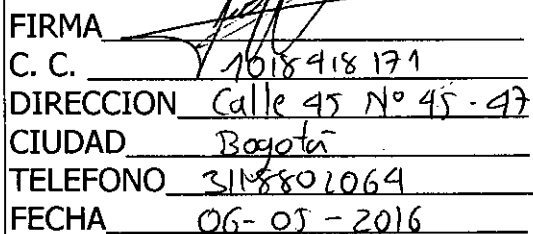 FIRMA
C. C. 1018418171
DIRECCION Calle 45 Nº 45-47
CIUDAD Bogotá
TELEFONO 3118802064
FECHA 06-05-2016